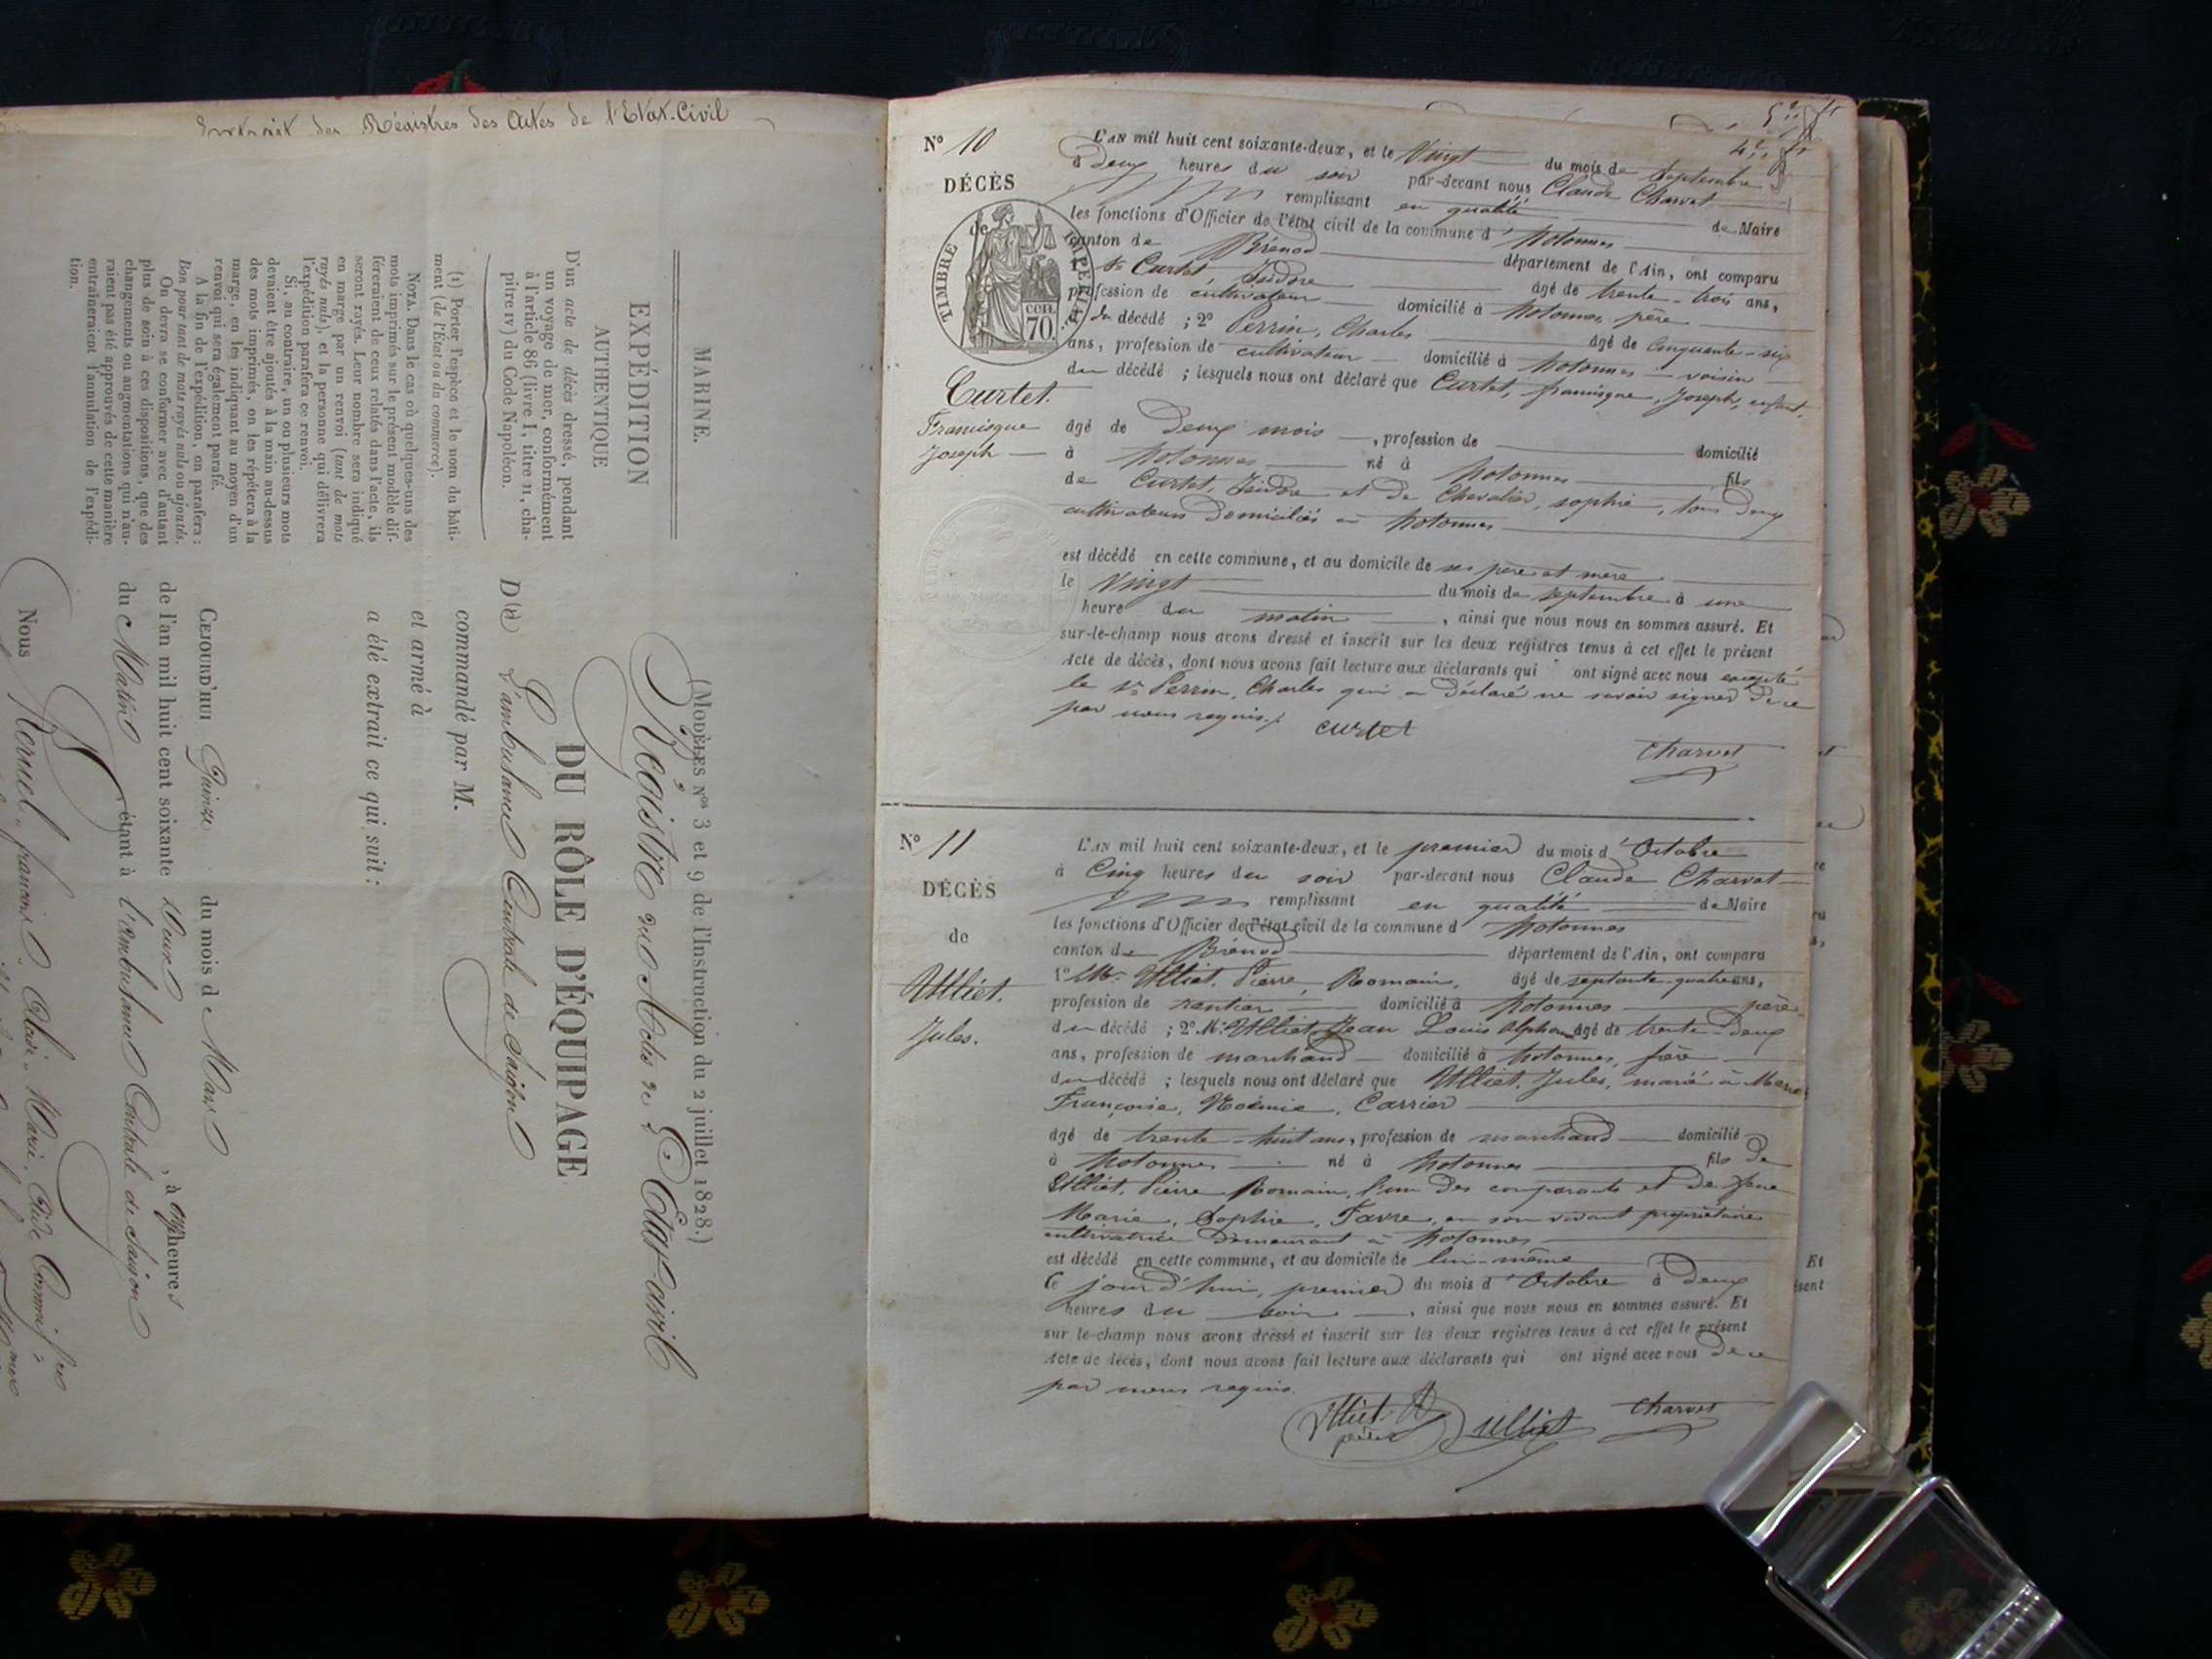 Extrait des Régistres des Actes de l'Etat-Civil
MARINE.
EXPÉDITION
AUTHENTIQUE
D'un acte de décès dressé, pendant
un voyage de mer, conformément
à l'article 86 (livre I, titre II, cha-
pitre IV) du Code Napoléon.
(1) Porter l'espèce et le nom du bâti-
ment (de l'État ou du commerce).
NOTA. Dans le cas où quelques-uns des
mots imprimés sur le présent modèle dif-
féreraient de ceux relatés dans l'acte, ils
seront rayés. Leur nombre sera indiqué
en marge par un renvoi (tant de mots
rayés nuls), et la personne qui délivrera
l'expédition parafera ce renvoi.
Si, au contraire, un ou plusieurs mots
devaient être ajoutés à la main au-dessus
des mots imprimés, on les répétera à la
marge, en les indiquant au moyen d'un
renvoi qui sera également parafé.
A la fin de l'expédition, on parafera :
Bon pour tant de mots rayés nuls ou ajoutés.
On devra se conformer avec d'autant
plus de soin à ces dispositions, que des
changements ou augmentations qui n'au-
raient pas été approuvés de cette manière
entraîneraient l'annulation de l'expédi-
tion.
(MODÈLES Nos 3 et 9 de l'Instruction du 2 juillet 1828.)
Régistre des Actes de l'Etat-civil
DU RÔLE D'ÉQUIPAGE
D(1) l'ambulance Centrale de Saïgon
commandé par M.
et armé à
a été extrait ce qui suit :
CEJOURD'HUI Quinze du mois d Mars
de l'an mil huit cent soixante deux, à onze heures
du Matin étant à l'ambulance Centrale de Saïgon
Nous
No 10
DÉCÈS
de
TIMBRE IMPÉRIAL
70 cen.
Curtet
Francisque
Joseph
L'AN mil huit cent soixante-deux, et le Vingt du mois de Septembre
à Deux heures du soir par-devant nous Claude Charvet
remplissant en qualité de Maire
les fonctions d'Officier de l'état civil de la commune d' hotonnes
canton de Brenod département de l'Ain, ont comparu
1° Sr Curtet Isidore âgé de trente-trois ans,
profession de cultivateur domicilié à hotonnes, père
du décédé ; 2° Perrin, Charles âgé de Cinquante-six
ans, profession de cultivateur domicilié à hotonnes voisin
du décédé ; lesquels nous ont déclaré que Curtet, francisque, Joseph, enfant,
âgé de Deux mois, profession de domicilié
à hotonnes né à hotonnes fils
de Curtet, Isidore et de Chevalier, sophie, tous deux
cultivateurs domiciliés à hotonnes
est décédé en cette commune, et au domicile de ses père et mère
le Vingt du mois de septembre à une
heure du matin, ainsi que nous nous en sommes assuré. Et
sur-le-champ nous avons dressé et inscrit sur les deux registres tenus à cet effet le présent
Acte de décès, dont nous avons fait lecture aux déclarants qui ont signé avec nous excepté
le sr Perrin, Charles qui a déclaré ne savoir signer de ce
par nous requis.
curtet
Charvet
No 11
DÉCÈS
de
Ulliet.
Jules.
L'AN mil huit cent soixante-deux, et le premier du mois d' Octobre
à Cinq heures du soir par-devant nous Claude Charvet
remplissant en qualité de Maire
les fonctions d'Officier de l'état civil de la commune d' hotonnes
canton de Brénod département de l'Ain, ont comparu
1° Mr Ulliet, Pierre, Romain, âgé de septante quatre ans,
profession de rentier domicilié à hotonnes père
du décédé ; 2° Mr Ulliet, Jean Louis Alphonse âgé de trente-deux
ans, profession de marchand domicilié à hotonnes, frère
du décédé ; lesquels nous ont déclaré que Ulliet, Jules, marié à Marie
Françoise, Noémie, Carrier
âgé de trente-huit ans, profession de marchand domicilié
à hotonnes né à hotonnes fils de
Ulliet, Pierre Romain, l'un des comparants et de feue
Marie, Sophie, Favre, en son vivant propriétaire
cultivatrice demeurant à hotonnes
est décédé en cette commune, et au domicile de lui-même
Ce jourd'hui, premier du mois d' Octobre à deux
heures du soir, ainsi que nous nous en sommes assuré. Et
sur le-champ nous avons dressé et inscrit sur les deux registres tenus à cet effet le présent
Acte de décès, dont nous avons fait lecture aux déclarants qui ont signé avec nous de ce
par nous requis.
Ulliet père
Ulliet
Charvet